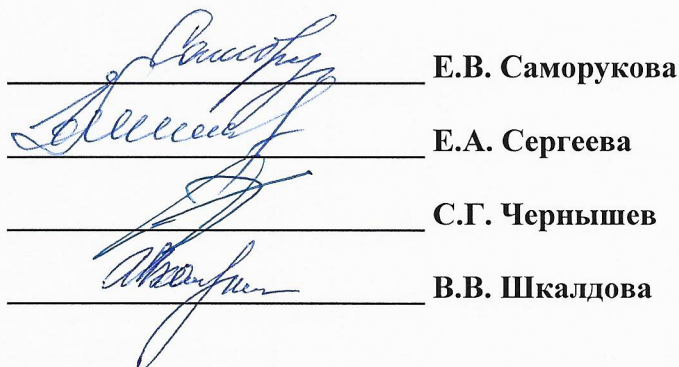 Е.В. Саморукова
Е.А. Сергеева
С.Г. Чернышев
В.В. Шкалдова